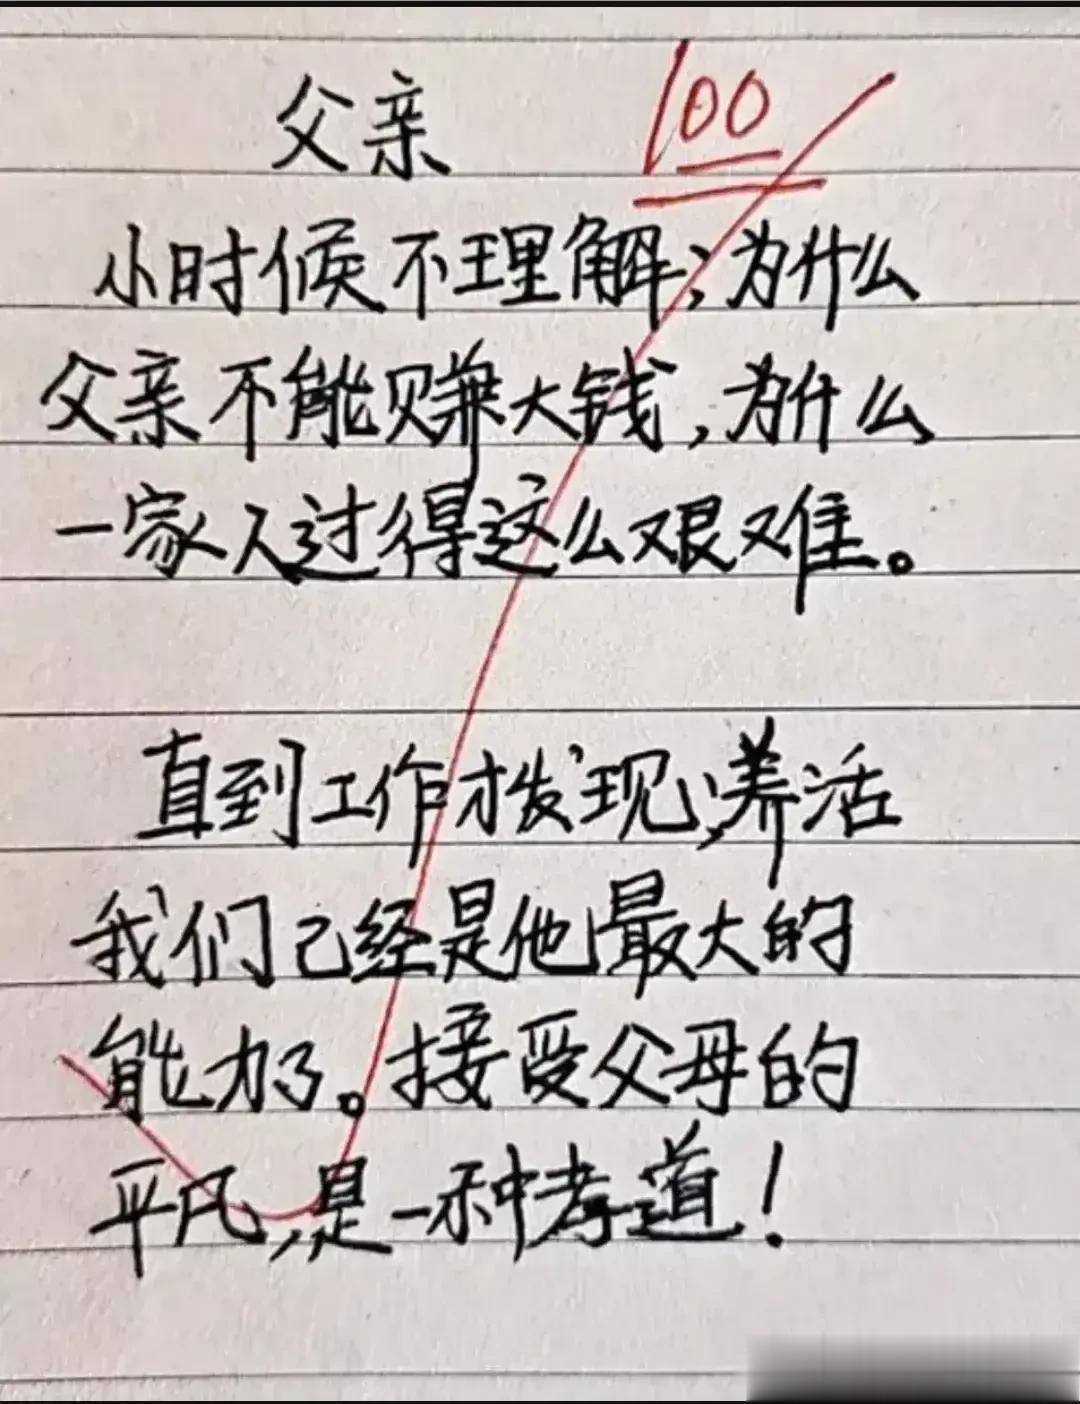 父亲
100
小时候不理解;为什么
父亲不能赚大钱,为什么
一家人过得这么艰难。
直到工作才发现,养活
我们己经是他最大的
能力了。接受父母的
平凡,是一种孝道!